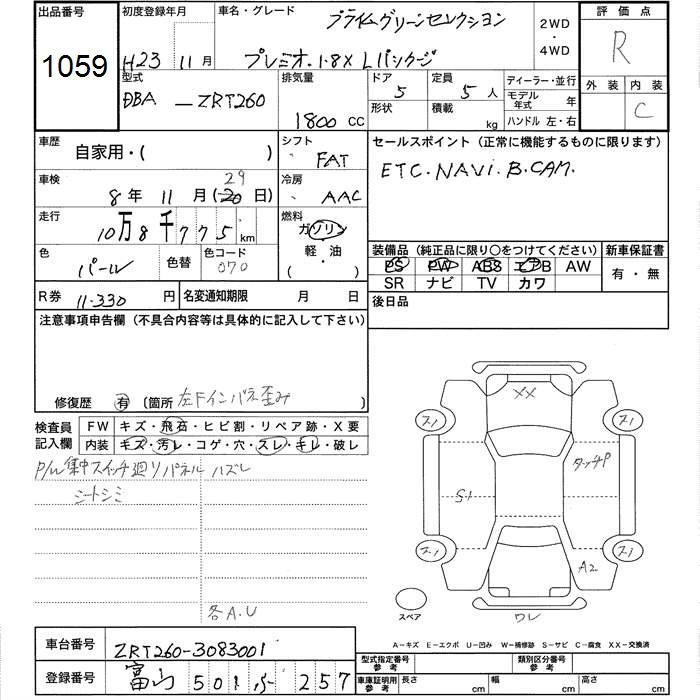 出品番号 初度登録年月 車名・グレード プライムグリーンセレクション 2WD・4WD 評価点
1059 H23 11月 プレミオ 1.8X Lパッケージ R
型式 排気量 ドア 定員 ディーラー・並行 外装 内装
DBA - ZRT260 1800 CC 5 5人 モデル年式 年 C
形状 積載 kg ハンドル 左・右
車歴 自家用・( ) シフト FAT セールスポイント（正常に機能するものに限ります）
車検 8年 11月 (20 29日) 冷房 AAC ETC. NAVI. B.CAM.
走行 10万8千775 km 燃料 ガソリン
色 パール 色替 色コード 070 軽・油 ( )
装備品（純正品に限り○をつけてください） 新車保証書
PS PW ABS エアB AW 有・無
SR ナビ TV カワ
R券 11,330 円 名変通知期限 月 日 後日品
注意事項申告欄（不具合内容等は具体的に記入して下さい）
修復歴 有 〔箇所 左Fインパネ歪み
検査員記入欄 FW キズ・飛石・ヒビ割・リペア跡・X要
内装 キズ・汚レ・コゲ・穴・スレ・キレ・破レ
P/W集中スイッチ廻リパネルハズレ
シートシミ
各A.U
XX
スリ スリ
タッチP
S1
スリ スリ
A2
スペア ワレ
A－キズ E－エクボ U－凹み W－補修跡 S－サビ C－腐食 XX－交換済
車台番号 ZRT260-3083001
登録番号 富山 501 ふ 257
型式指定番号 参考 類別区分番号 参考
車庫証明用 参考 長さ cm 幅 cm 高さ cm